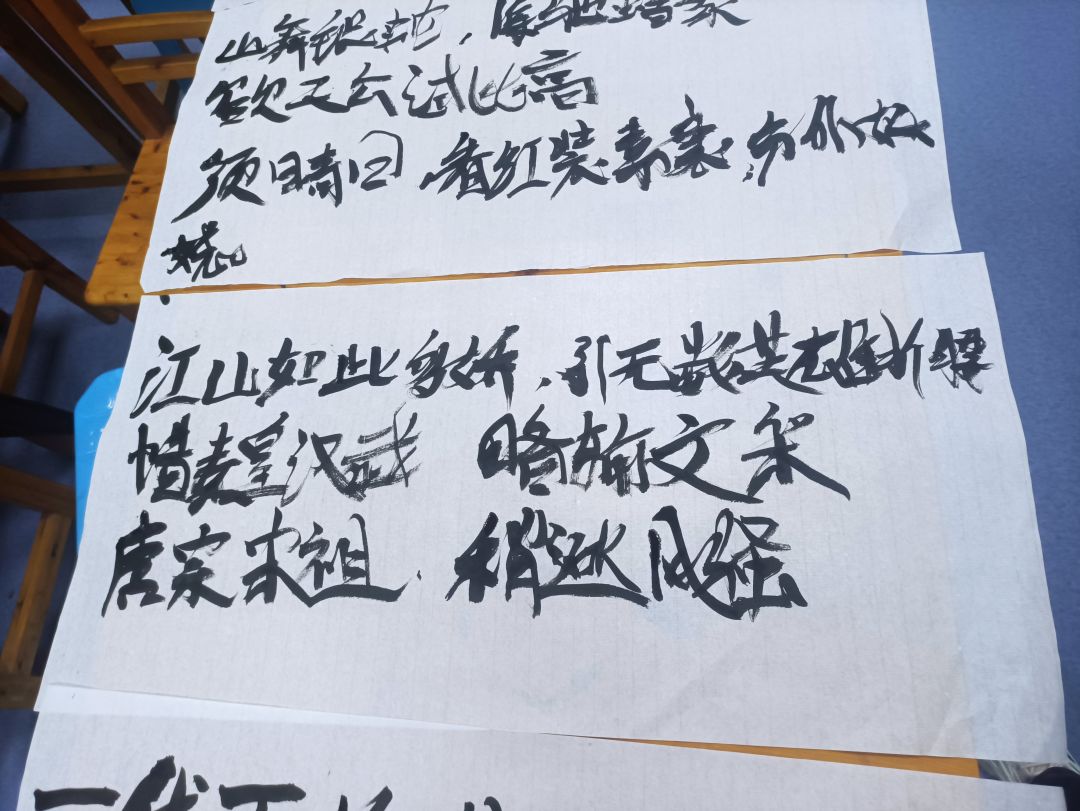 山舞银蛇，原驰蜡象
欲天公试比高
须晴日，看红装素裹，分外妖
娆。
江山如此多娇，引无数英雄折腰
惜秦皇汉武 略输文采
唐宗宋祖，稍逊风骚
一代天